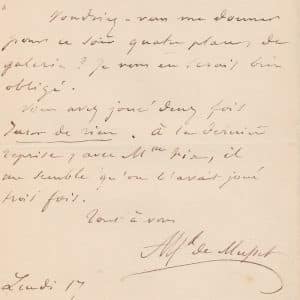 Voudriez-vous me donner
pour ce soir quatre places de
galerie? Je vous en serais bien
obligé.
Vous avez joué deux fois
Jurer de rien. à la dernière
reprise, avec Mme, il
me semble qu'on l'avait joué
trois fois.
Tout à vous
Alfd de Musset
Lundi 17